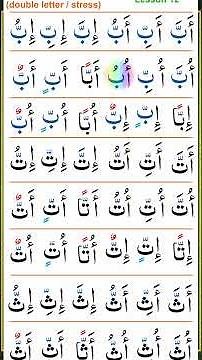 (double letter / stress) Lesson 12
أَبَّ أَبِّ أَبُّ إِبَّ إِبِّ إِبُّ
أُبَّ أُبِّ أُبُّ أَبًّا أَبٍّ أَبٌّ
إِبًّا إِبٍّ إِبٌّ أُبًّا أُبٍّ أُبٌّ
أَتَّ أَتِّ أَتُّ إِتَّ إِتِّ إِتُّ
أُتَّ أُتِّ أُتُّ أَتًّا أَتٍّ أَتٌّ
إِتًّا إِتٍّ إِتٌّ أُتًّا أُتٍّ أُتٌّ
أَثَّ أَثِّ أَثُّ إِثَّ إِثِّ إِثُّ
أُثَّ أُثِّ أُثُّ أَثًّا أَثٍّ أَثٌّ